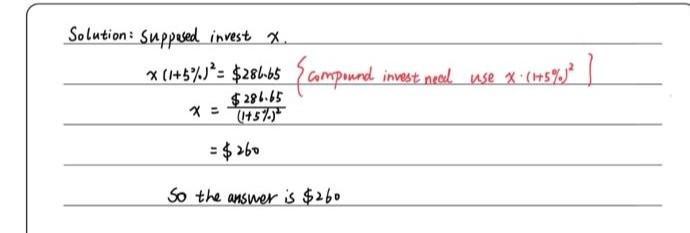 Solution: Supposed invest x.
x(1+5%)²= $286.65 {compound invest need use x·(1+5%)²}
x = $286.65/(1+5%)²
= $260
So the answer is $260